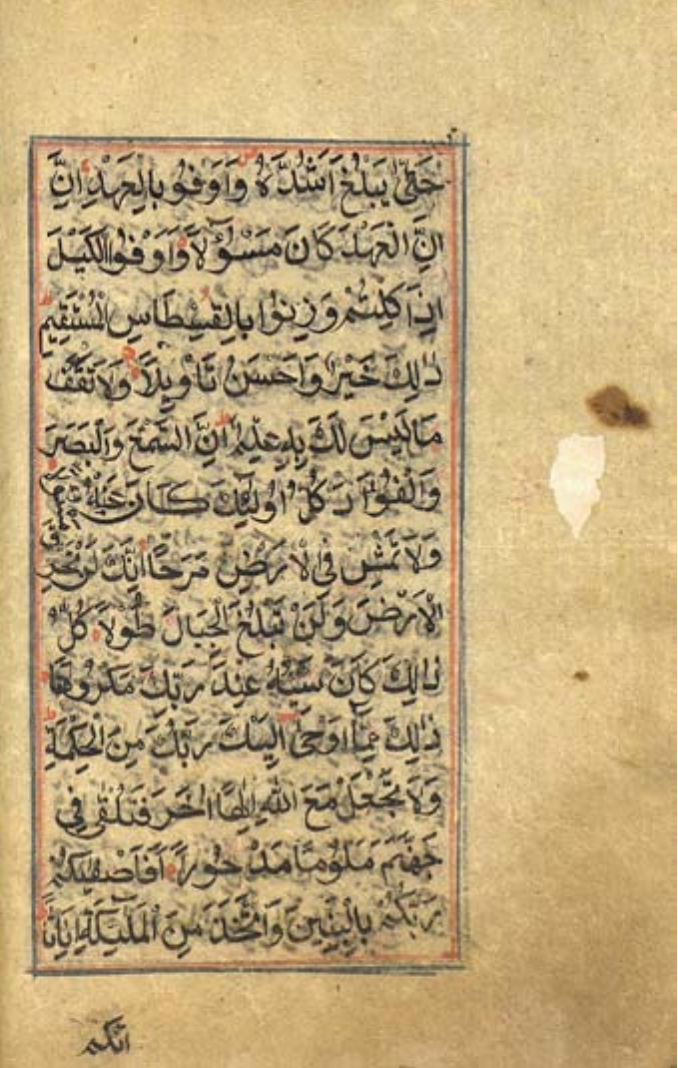 حَتّٰى يَبْلُغَ اَشُدَّهُ وَاَوْفُو بِالْعَهْدِ اِنَّ
اِنَّ الْعَهْدَ كَانَ مَسْؤُلًا وَاَوْفُوا الْكَيْلَ
اِذَا كِلْتُمْ وَزِنُوا بِالْقِسْطَاسِ الْمُسْتَقِيْمِ
ذٰلِكَ خَيْرٌ وَاَحْسَنُ تَاْوِيْلًا وَلَا تَقْفُ
مَا لَيْسَ لَكَ بِهٖ عِلْمٌ اِنَّ السَّمْعَ وَالْبَصَرَ
وَالْفُؤَادَ كُلُّ اُولٰئِكَ كَانَ عَنْهُ
وَلَا تَمْشِ فِى الْاَرْضِ مَرَحًا اِنَّكَ لَنْ تَخْرِقَ
الْاَرْضَ وَلَنْ تَبْلُغَ الْجِبَالَ طُوْلًا كُلُّ
ذٰلِكَ كَانَ سَيِّئُهُ عِنْدَ رَبِّكَ مَكْرُوْهًا
ذٰلِكَ مِمَّا اَوْحٰى اِلَيْكَ رَبُّكَ مِنَ الْحِكْمَةِ
وَلَا تَجْعَلْ مَعَ اللّٰهِ اِلٰهًا اٰخَرَ فَتُلْقٰى فِى
جَهَنَّمَ مَلُوْمًا مَدْحُوْرًا اَفَاَصْفٰيكُمْ
رَبُّكُمْ بِالْبَنِيْنَ وَاتَّخَذَ مِنَ الْمَلٰئِكَةِ اِنَاثًا
انكم